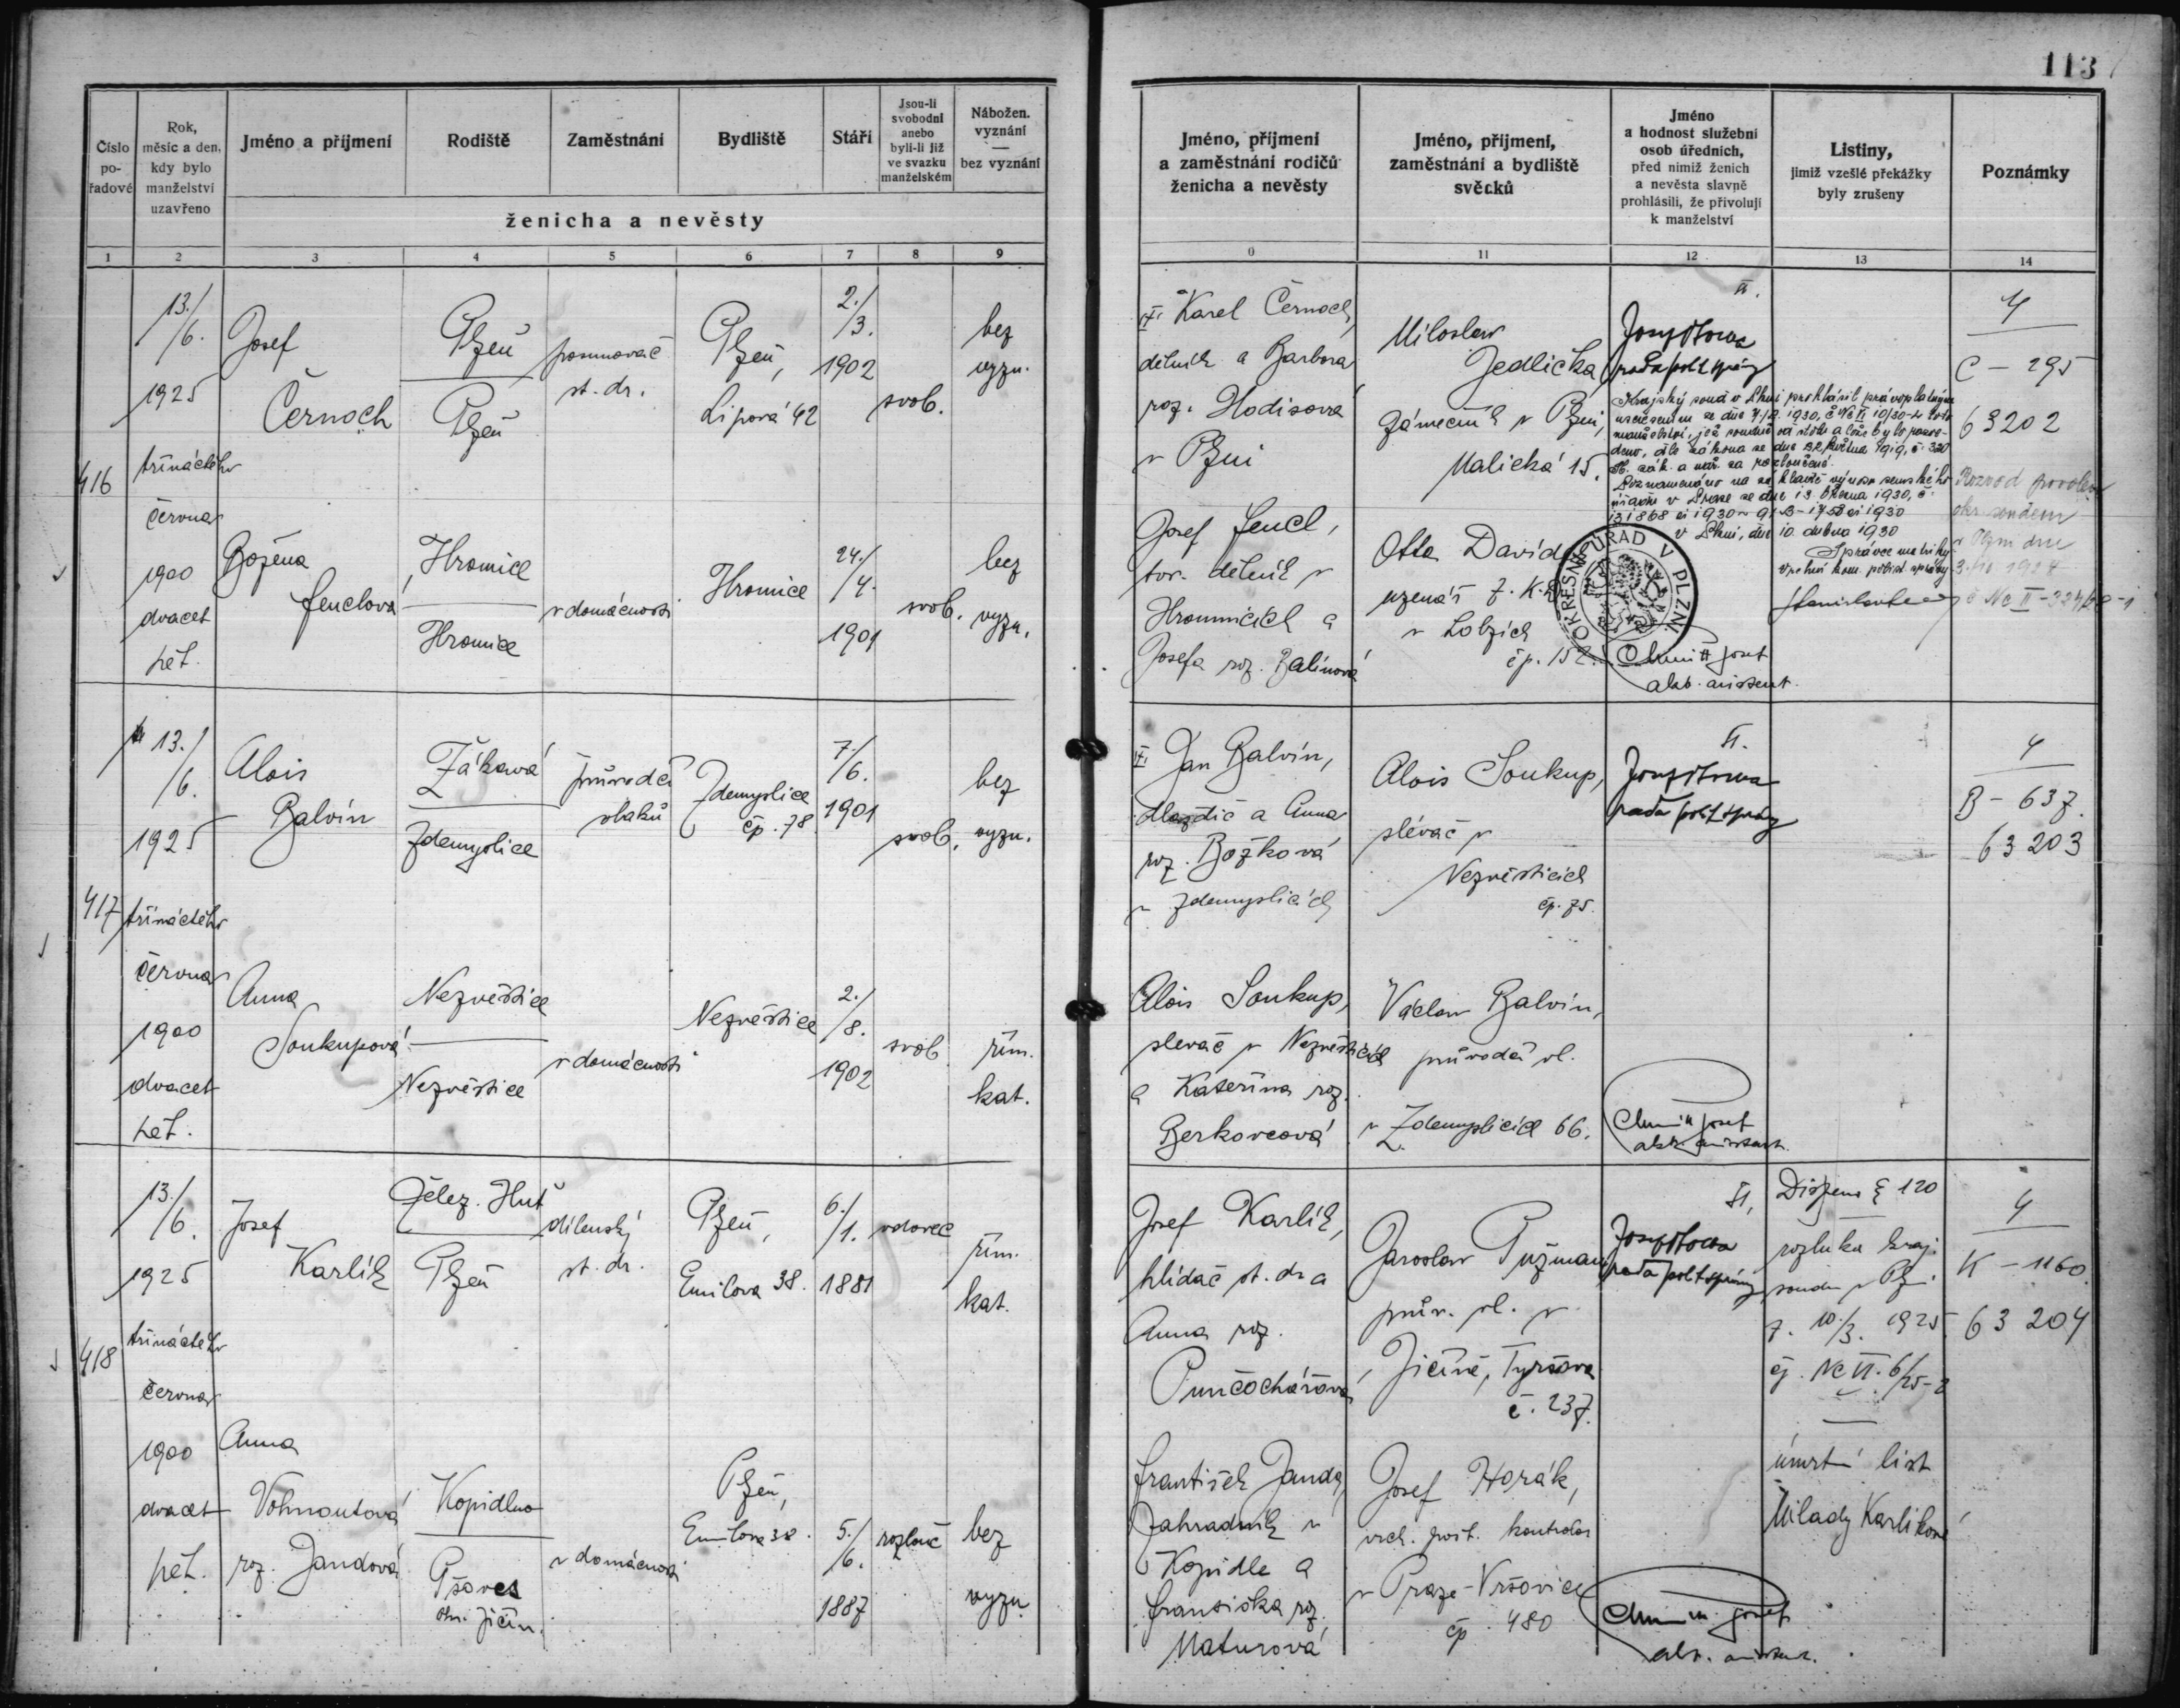 113
Číslo
po-
řadové
Rok,
měsíc a den,
kdy bylo
manželství
uzavřeno
Jméno a příjmení
Rodiště
Zaměstnání
Bydliště
Stáří
Jsou-li
svobodni
anebo
byli-li již
ve svazku
manželském
Nábožen.
vyznání
—
bez vyznání
ženicha a nevěsty
1 2 3 4 5 6 7 8 9
Jméno, příjmení
a zaměstnání rodičů
ženicha a nevěsty
Jméno, příjmení,
zaměstnání a bydliště
svědků
Jméno
a hodnost služební
osob úředních,
před nimiž ženich
a nevěsta slavně
prohlásili, že přivolují
k manželství
Listiny,
jimiž vzešlé překážky
byly zrušeny
Poznámky
0 11 12 13 14
416
13./
/6.
1925
třináctého
června
1900
dvacet
pět.
Josef
Černoch
Plzeň
Plzeň
posunovač
st. dr.
Plzeň,
Lipová 42
2./
/3.
1902
svob.
bez
vyzn.
Božena
Fenclova
Hromice
Hromice
v domácnosti
Hromice
24./
/4.
1901
svob.
bez
vyzn.
Karel Černoch,
dělník a Barbora
roz. Hodisova
v Plzni
Josef Fencl,
tov. dělník v
Hromnicích a
Josefa roz. Balínová
Miloslav
Jedlička
zámečník v Plzni,
Malická 15.
Otto David
uzenář
v Lobzích
čp. 152.
II.
rada polit. správy
Krajský soud v Plzni prohlásil právoplatným
usnesením ze dne 7./2. 1930, č. Nc II 10/30-2 toto
manželství, jež soudně od stolu a lože bylo rozve-
deno, dle zákona ze dne 22. května 1919, č. 320
Sb. zák. a nař. za rozloučené.
Poznamenáno na základě výnosu zemského
úřadu v Praze ze dne 13. března 1930, č.
131868 ai 1930
v Plzni, dne 10. dubna 1930
Správce matriky
OKRESNÍ ÚŘAD V PLZNI
Josef
alb. asistent.
4
C - 295
63202
Rozvod povolen
okr. soudem
v Plzni dne
417
13./
/6.
1925
třináctého
června
1900
dvacet
pět.
Alois
Balvín
Žákavá
Zdemyslice
průvodčí
vlaků
Zdemyslice
čp. 78.
7./
/6.
1901
svob.
bez
vyzn.
Anna
Soukupová
Nezvěstice
Nezvěstice
v domácnosti
Nezvěstice
2./
/8.
1902
svob
řím.
kat.
Jan Balvín,
dlaždič a Anna
roz. Božková
v Zdemyslicích
Alois Soukup,
slévač v Nezvěsticích
a Kateřina roz.
Berkovcová
Alois Soukup,
slévač v
Nezvěsticích
čp. 75.
Václav Balvín,
průvodčí vl.
v Zdemyslicích 66.
II.
rada polit. správy
Josef
alb. asistent.
4
B - 637.
63203
418
13./
/6.
1925
třináctého
června
1900
dvacet
pět.
Josef
Karlík
Želez. Huť
Plzeň
dílenský
st. dr.
Plzeň,
Emilova 38.
6./
/1.
1881
vdovec
řím.
kat.
Anna
Vohnoutová
roz. Jandová
Kopidlno
Pšoves
okr. Jičín.
v domácnosti
Plzeň,
Emilova 38.
5./
/6.
1887
rozlouč
bez
vyzn
Josef Karlík,
hlídač st. dr. a
Anna roz.
Punčochářová
František Janda,
zahradník v
Kopidle a
Františka roz.
Maturová
Jaroslav Pužman
prův. vl. v
Jičíně, Tyršova
č. 237.
Josef Horák,
vrch. pošt. kontrolor
v Praze-Vršovice
čp. 480
II.
rada polit. správy
Josef
alb. asistent.
Dispens § 120
rozluka kraj.
soudu v Plzni
z. 10./3. 1925
čj. Nc VI. 6/25-2
úmrtní list
Milady Karlíkové
4
K - 1160.
63204